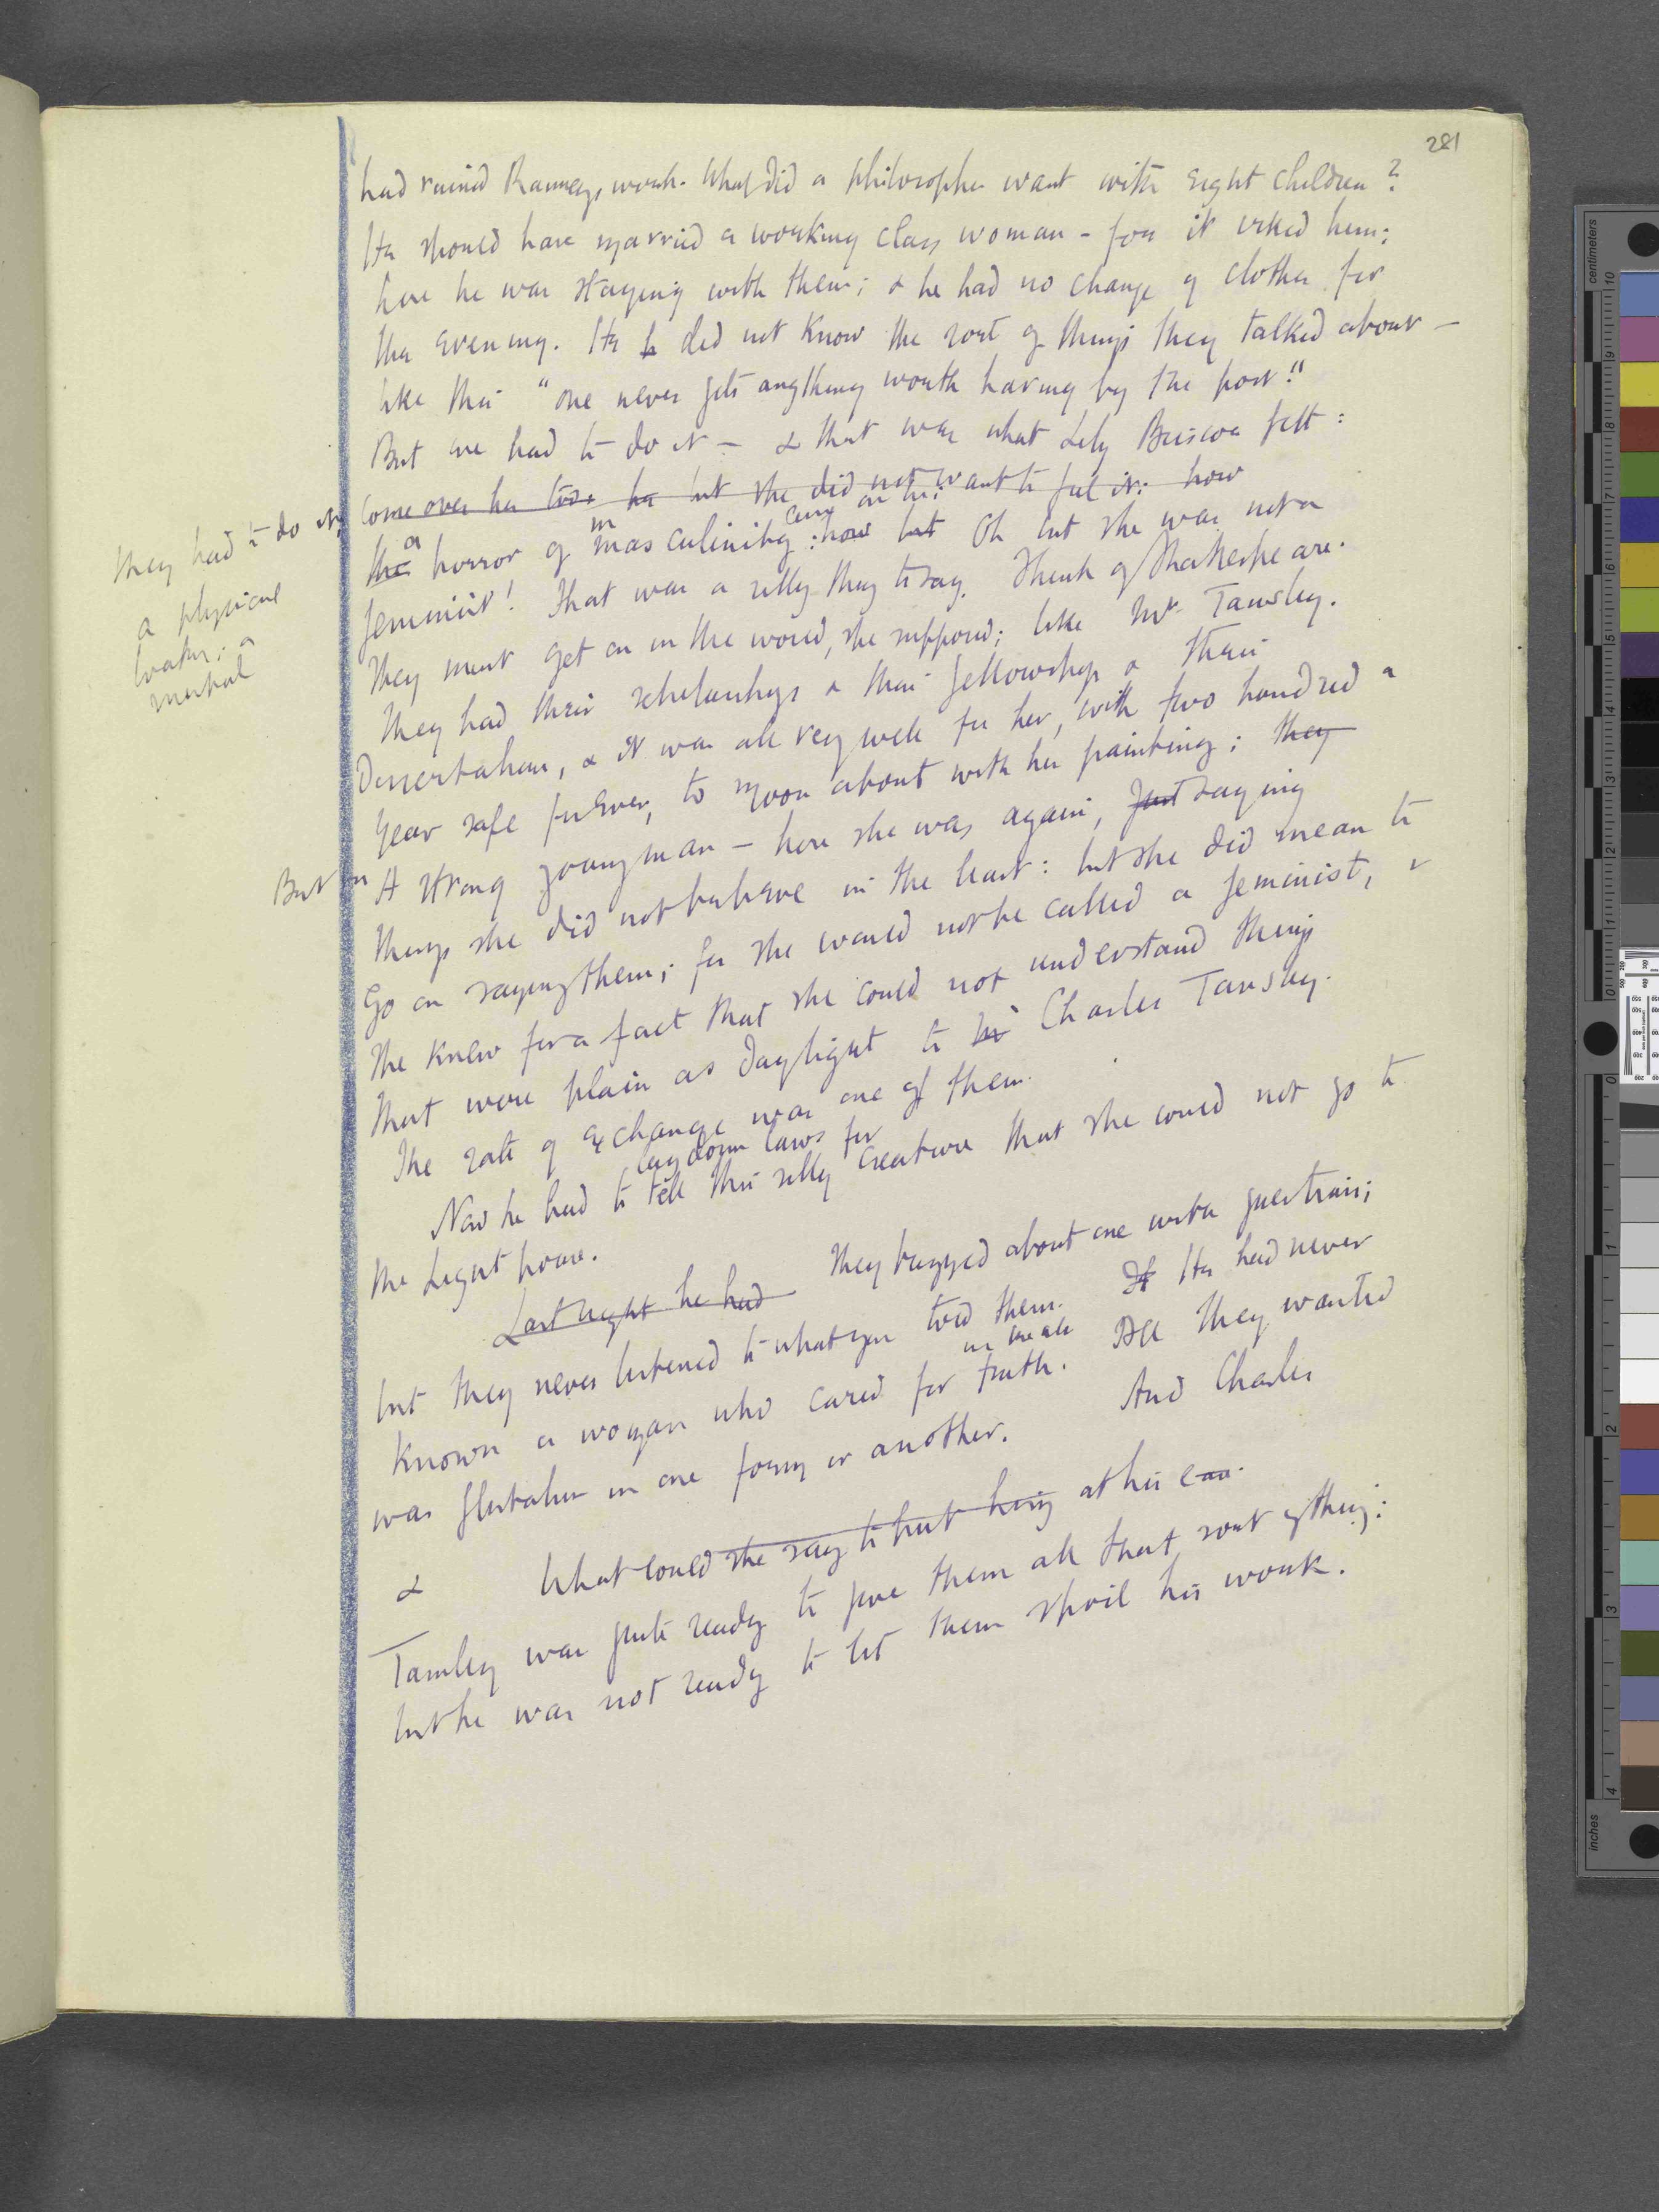 281
had ruined Ramsays work. What did a philosopher want with eight children?
He should have married a working class woman - for it irked him;
here he was staying with them; & he had no change of clothes for
the evening. He h did not know the sort of things they talked about -
like this "one never gets anything worth having by the post."
But we had to do it - & that was what Lily Briscoe felt:
They had to do it;
come over her too her but she did not want to feel it: how
came on her:
the a horror of masculinity: how but Oh but she was not a
a physical
feminist! That was a silly thing to say. Think of Shakespeare.
mental
They must get on in the world, she supposed; like Mr. Tansley.
They had their scholarships & their fellowships & their
Dissertations, & it was all very well for her, with two hundred a
year safe for ever, to moon about with her painting; they
But
A strong young man - here she was again, just saying
things she did not believe in the least: but she did mean to
go on saying them; for she would not be called a feminist,
she knew for a fact that she could not understand things
that were plain as daylight to Mr Charles Tansley.
The rate of exchange was one of them.
lay down laws for
Now he had to tell this silly creature that she could not go to
the Light house.
Last night he had They bagged about one with questions;
but they never listened to what you told them. If He had never
known a woman who cared for truth. All they wanted
was flirtation in one form or another. And Charles
& What could she say to put him at his ease.
Tansley was quite ready to give them all that sort of thing:
but he was not ready to let them spoil his work.